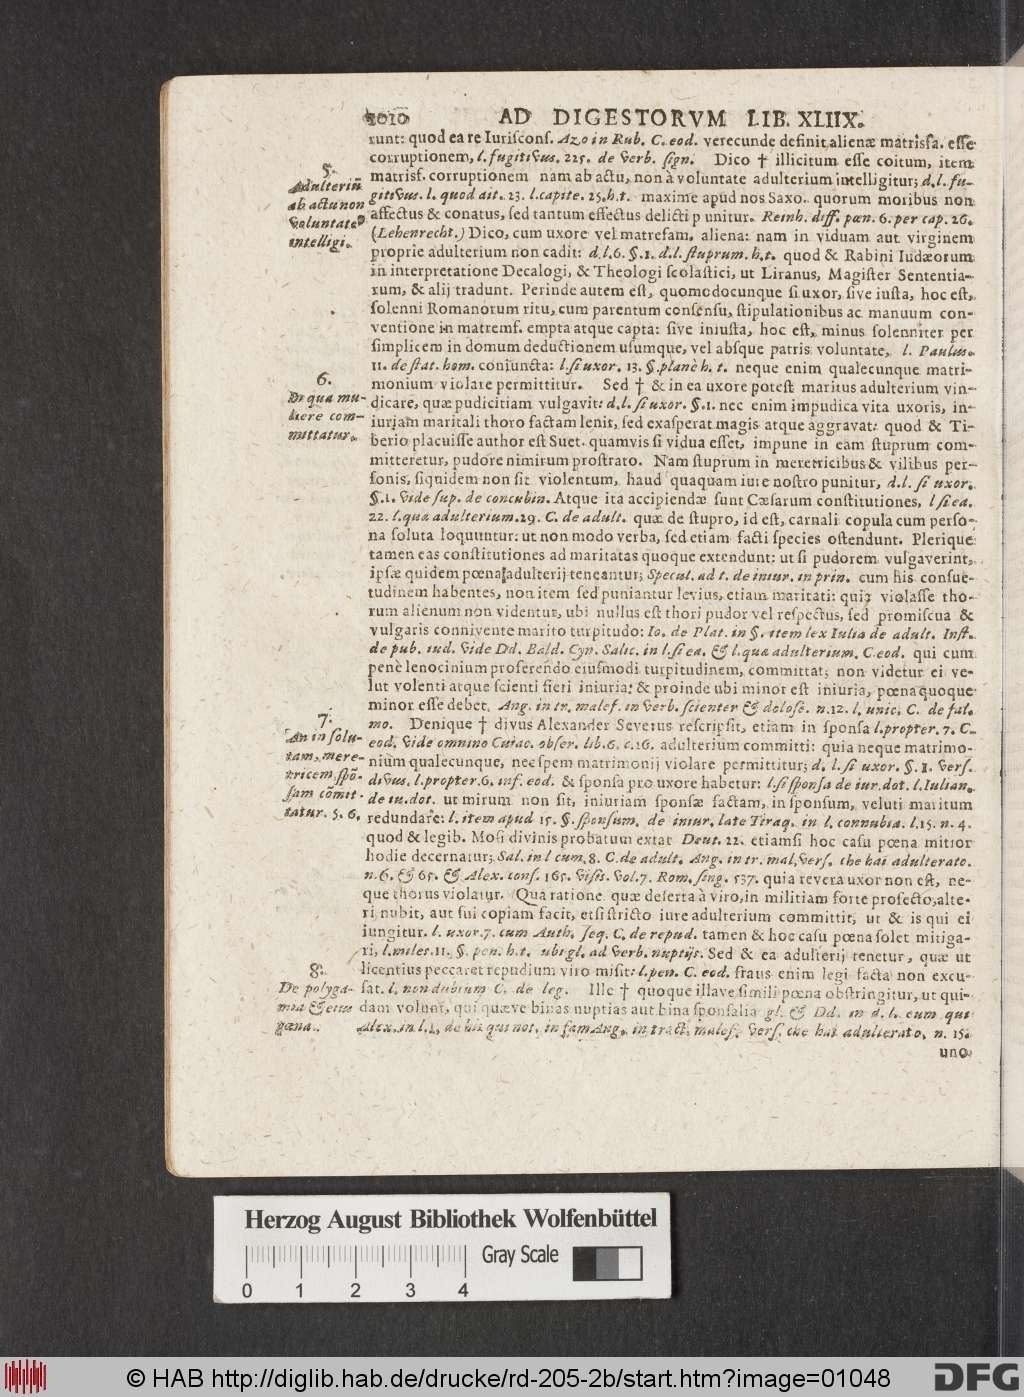 1010 AD DIGESTORVM LIB. XLIIX.
runt: quod ea re Iurisconſ. Azo in Rub. C. eod. verecunde definit, alienæ matrisfa. eſſe
corruptionem, l. fugitivus. 225. de verb. ſign. Dico † illicitum eſſe coitum, item
matriſf. corruptionem nam ab actu, non à voluntate adulterium intelligitur; d. l. fu-
gitivus. l. quod ait. 23. l. capite. 25. h.t. maxime apud nos Saxo. quorum moribus non
affectus & conatus, ſed tantum effectus delicti punitur. Reinh. diff. pœn. 6. per cap. 26.
(Lehenrecht.) Dico, cum uxore vel matrefam. aliena: nam in viduam aut virginem
proprie adulterium non cadit: d. l. 6. §. 1. d. l. ſtuprum. h.t. quod & Rabini Iudæorum
in interpretatione Decalogi, & Theologi ſcolaſtici, ut Liranus, Magiſter Sententia-
rum, & alij tradunt. Perinde autem eſt, quomodocunque ſi uxor, ſive iuſta, hoc eſt,
ſolenni Romanorum ritu, cum parentum conſenſu, ſtipulationibus ac manuum con-
ventione in matremf. empta atque capta: ſive iniuſta, hoc eſt, minus ſolenniter per
ſimplicem in domum deductionem uſumque, vel abſque patris voluntate, l. Paulus.
11. de ſtat. hom. coniuncta: l. ſi uxor. 13. §. planè h. t. neque enim qualecunque matri-
monium violare permittitur. Sed † & in ea uxore poteſt maritus adulterium vin-
dicare, quæ pudicitiam vulgavit: d. l. ſi uxor. §. 1. nec enim impudica vita uxoris, in-
iuriam maritali thoro factam lenit, ſed exaſperat magis atque aggravat: quod & Ti-
berio placuiſſe author eſt Suet. quamvis ſi vidua eſſet, impune in eam ſtuprum com-
mitteretur, pudore nimirum proſtrato. Nam ſtuprum in meretricibus & vilibus per-
ſonis, ſiquidem non ſit violentum, haud quaquam iure noſtro punitur, d. l. ſi uxor.
§. 1. vide ſup. de concubin. Atque ita accipiendæ ſunt Cæſarum conſtitutiones, l ſi ea.
22. l. qua adulterium. 29. C. de adult. quæ de ſtupro, id eſt, carnali copula cum perſo-
na ſoluta loquuntur: ut non modo verba, ſed etiam facti ſpecies oſtendunt. Plerique
tamen eas conſtitutiones ad maritatas quoque extendunt: ut ſi pudorem vulgaverint,
ipſæ quidem pœna adulterij teneantur; Specul. ad t. de iniur. in prin. cum his conſue-
tudinem habentes, non item ſed puniantur levius, etiam maritati: quia violaſſe tho-
rum alienum non videntur, ubi nullus eſt thori pudor vel reſpectus, ſed promiſcua &
vulgaris connivente marito turpitudo: Io. de Plat. in §. item lex Iulia de adult. Inſt.
de pub. iud. vide Dd. Bald. Cyn. Salic. in l. ſi ea. & l. qua adulterium. C. eod. qui cum
penè lenocinium proferendo eiuſmodi turpitudinem, committat; non videtur ei ve-
lut volenti atque ſcienti fieri iniuria; & proinde ubi minor eſt iniuria, pœna quoque
minor eſſe debet. Ang. in tr. malef. in verb. ſcienter & doloſe. n. 12. l. unic. C. de fal.
mo. Denique † divus Alexander Severus reſcripſit, etiam in ſponſa l. propter. 7. C.
eod. vide omnino Cuiac. obſer. lib. 6. c. 16. adulterium committi: quia neque matrimo-
nium qualecunque, nec ſpem matrimonij violare permittitur; d. l. ſi uxor. §. 1. verſ.
divus. l. propter. 6. inf. eod. & ſponſa pro uxore habetur: l. ſi ſponſa de iur. dot. l. Iulian.
de iu. dot. ut mirum non ſit, iniuriam ſponſæ factam, in ſponſum, veluti maritum
redundare: l. item apud 15. §. ſponſum. de iniur. late Tiraq. in l. connubia. l. 15. n. 4.
quod & legib. Moſi divinis probatum extat Deut. 22. etiamſi hoc caſu pœna mitior
hodie decernatur; Sal. in l cum. 8. C. de adult. Ang. in tr. mal. verſ. che hai adulterato.
n. 6. & 65. & Alex. conſ. 165. viſis. vol. 7. Rom. ſing. 537. quia revera uxor non eſt, ne-
que thorus violatur. Qua ratione quæ deſerta à viro, in militiam forte profecto, alte-
ri nubit, aut ſui copiam facit, etſi ſtricto iure adulterium committit, ut & is qui ei
iungitur. l. uxor. 7. cum Auth. ſeq. C. de repud. tamen & hoc caſu pœna ſolet mitiga-
ri, l. miles. 11. §. pen. h.t. ubi gl. ad verb. nuptijs. Sed & ea adulterij tenetur, quæ ut
licentius peccaret repudium viro miſit: l. pen. C. eod. fraus enim legi facta non excu-
ſat. l. non dubium C. de leg. Ille † quoque illave ſimili pœna obſtringitur, ut qui-
dam volunt, qui quæve binas nuptias aut bina ſponſalia gl. & Dd. in d. l. eum qui
Alex. in l. 1. de his qui not. in fam Ang. in tract. malef. verſ. che hai adulterato. n. 15.
uno
5.
Adulteriũ
ab actu non
voluntate
intelligi.
6.
In qua mu-
liere com-
mittatur.
7.
An in ſolu-
tam, mere-
tricem, ſpõ-
ſam cõmit-
tatur. 5. 6.
8.
De polyga-
mia & eius
pœna.
Herzog August Bibliothek Wolfenbüttel
Gray Scale
0 1 2 3 4
© HAB http://diglib.hab.de/drucke/rd-205-2b/start.htm?image=01048
DFG